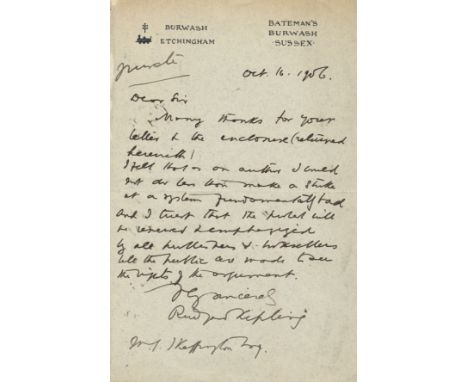 BURWASH
ETCHINGHAM
BATEMAN'S
BURWASH
SUSSEX.
private
Oct. 16. 1906.
Dear Sir
Many thanks for your
letter & the enclosure (returned
herewith)
I felt that as an author I could
not do less than make a
at a system fundamentally bad
and I trust that the protest will
be renewed & emphasized
by all publishers & booksellers
till the public are made to see
the rights of the argument.
Yrs sincerely
Rudyard Kipling
Skeffington Esq.